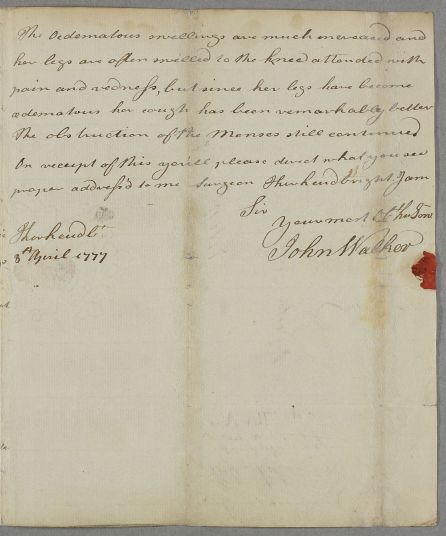 The Oedematous swellings are much increased and
her legs are often swelled to the knee attended with
pain and redness, but since her legs have become
œdematous her cough has been remarkably better
The obstruction of the Menses still continued
On receipt of this you'll please direct what you see
proper address'd to me Surgeon Thorheudbright I am
Sir
your most Ob Ser
John Walker
8th April 1777